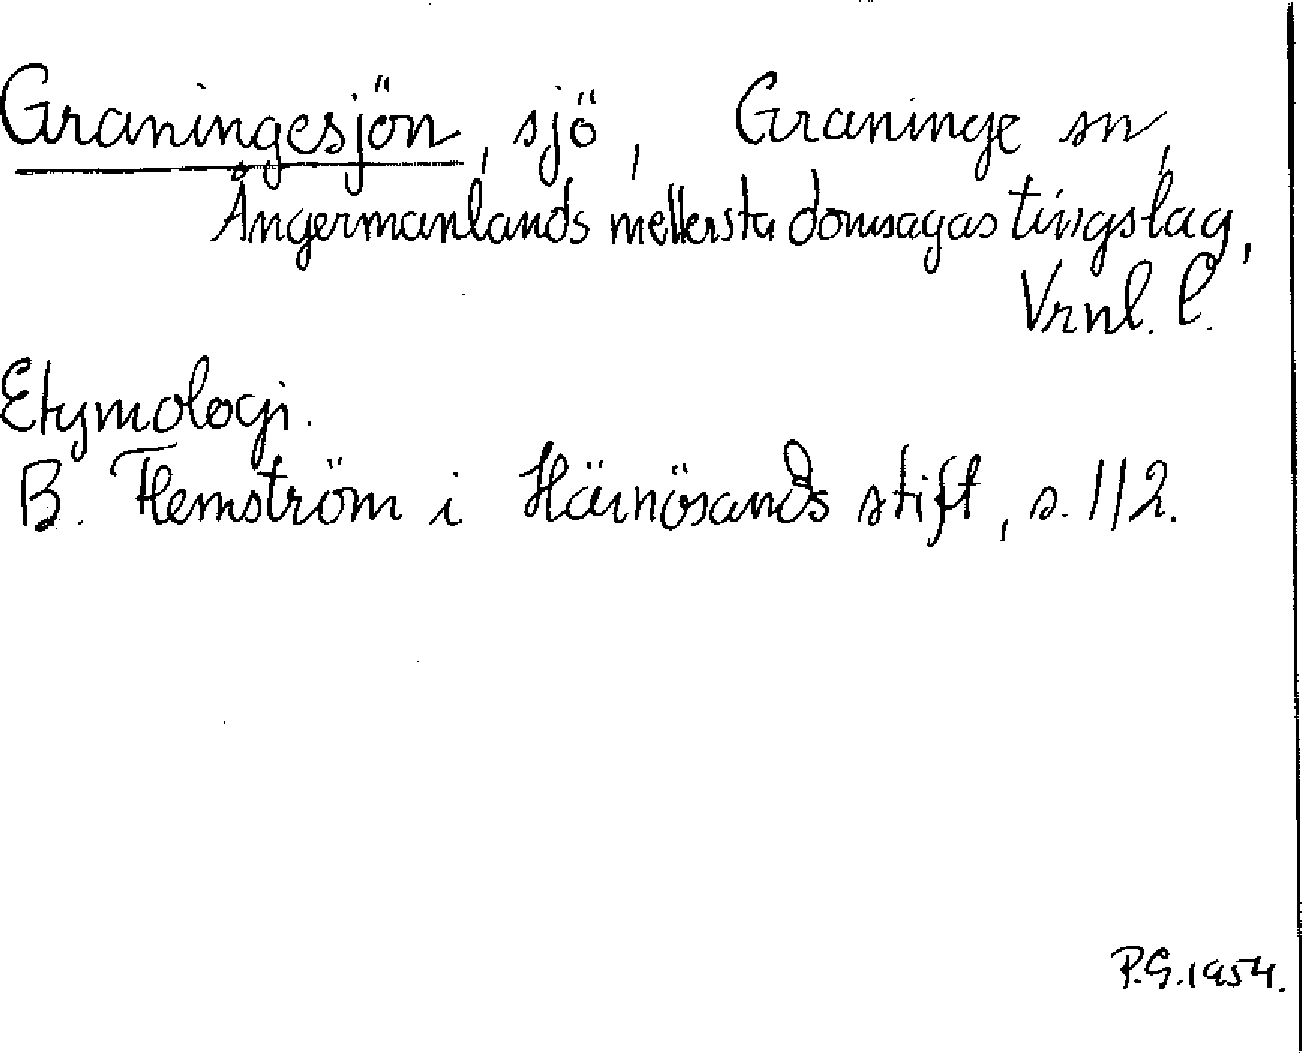 Graningesjön, sjö, Graninge sn,
Ångermanlands mellersta domsagas tingslag,
Vrnl. l.
Etymologi.
B. Flemström i Härnösands stift, s. 112.
P.G. 1954.